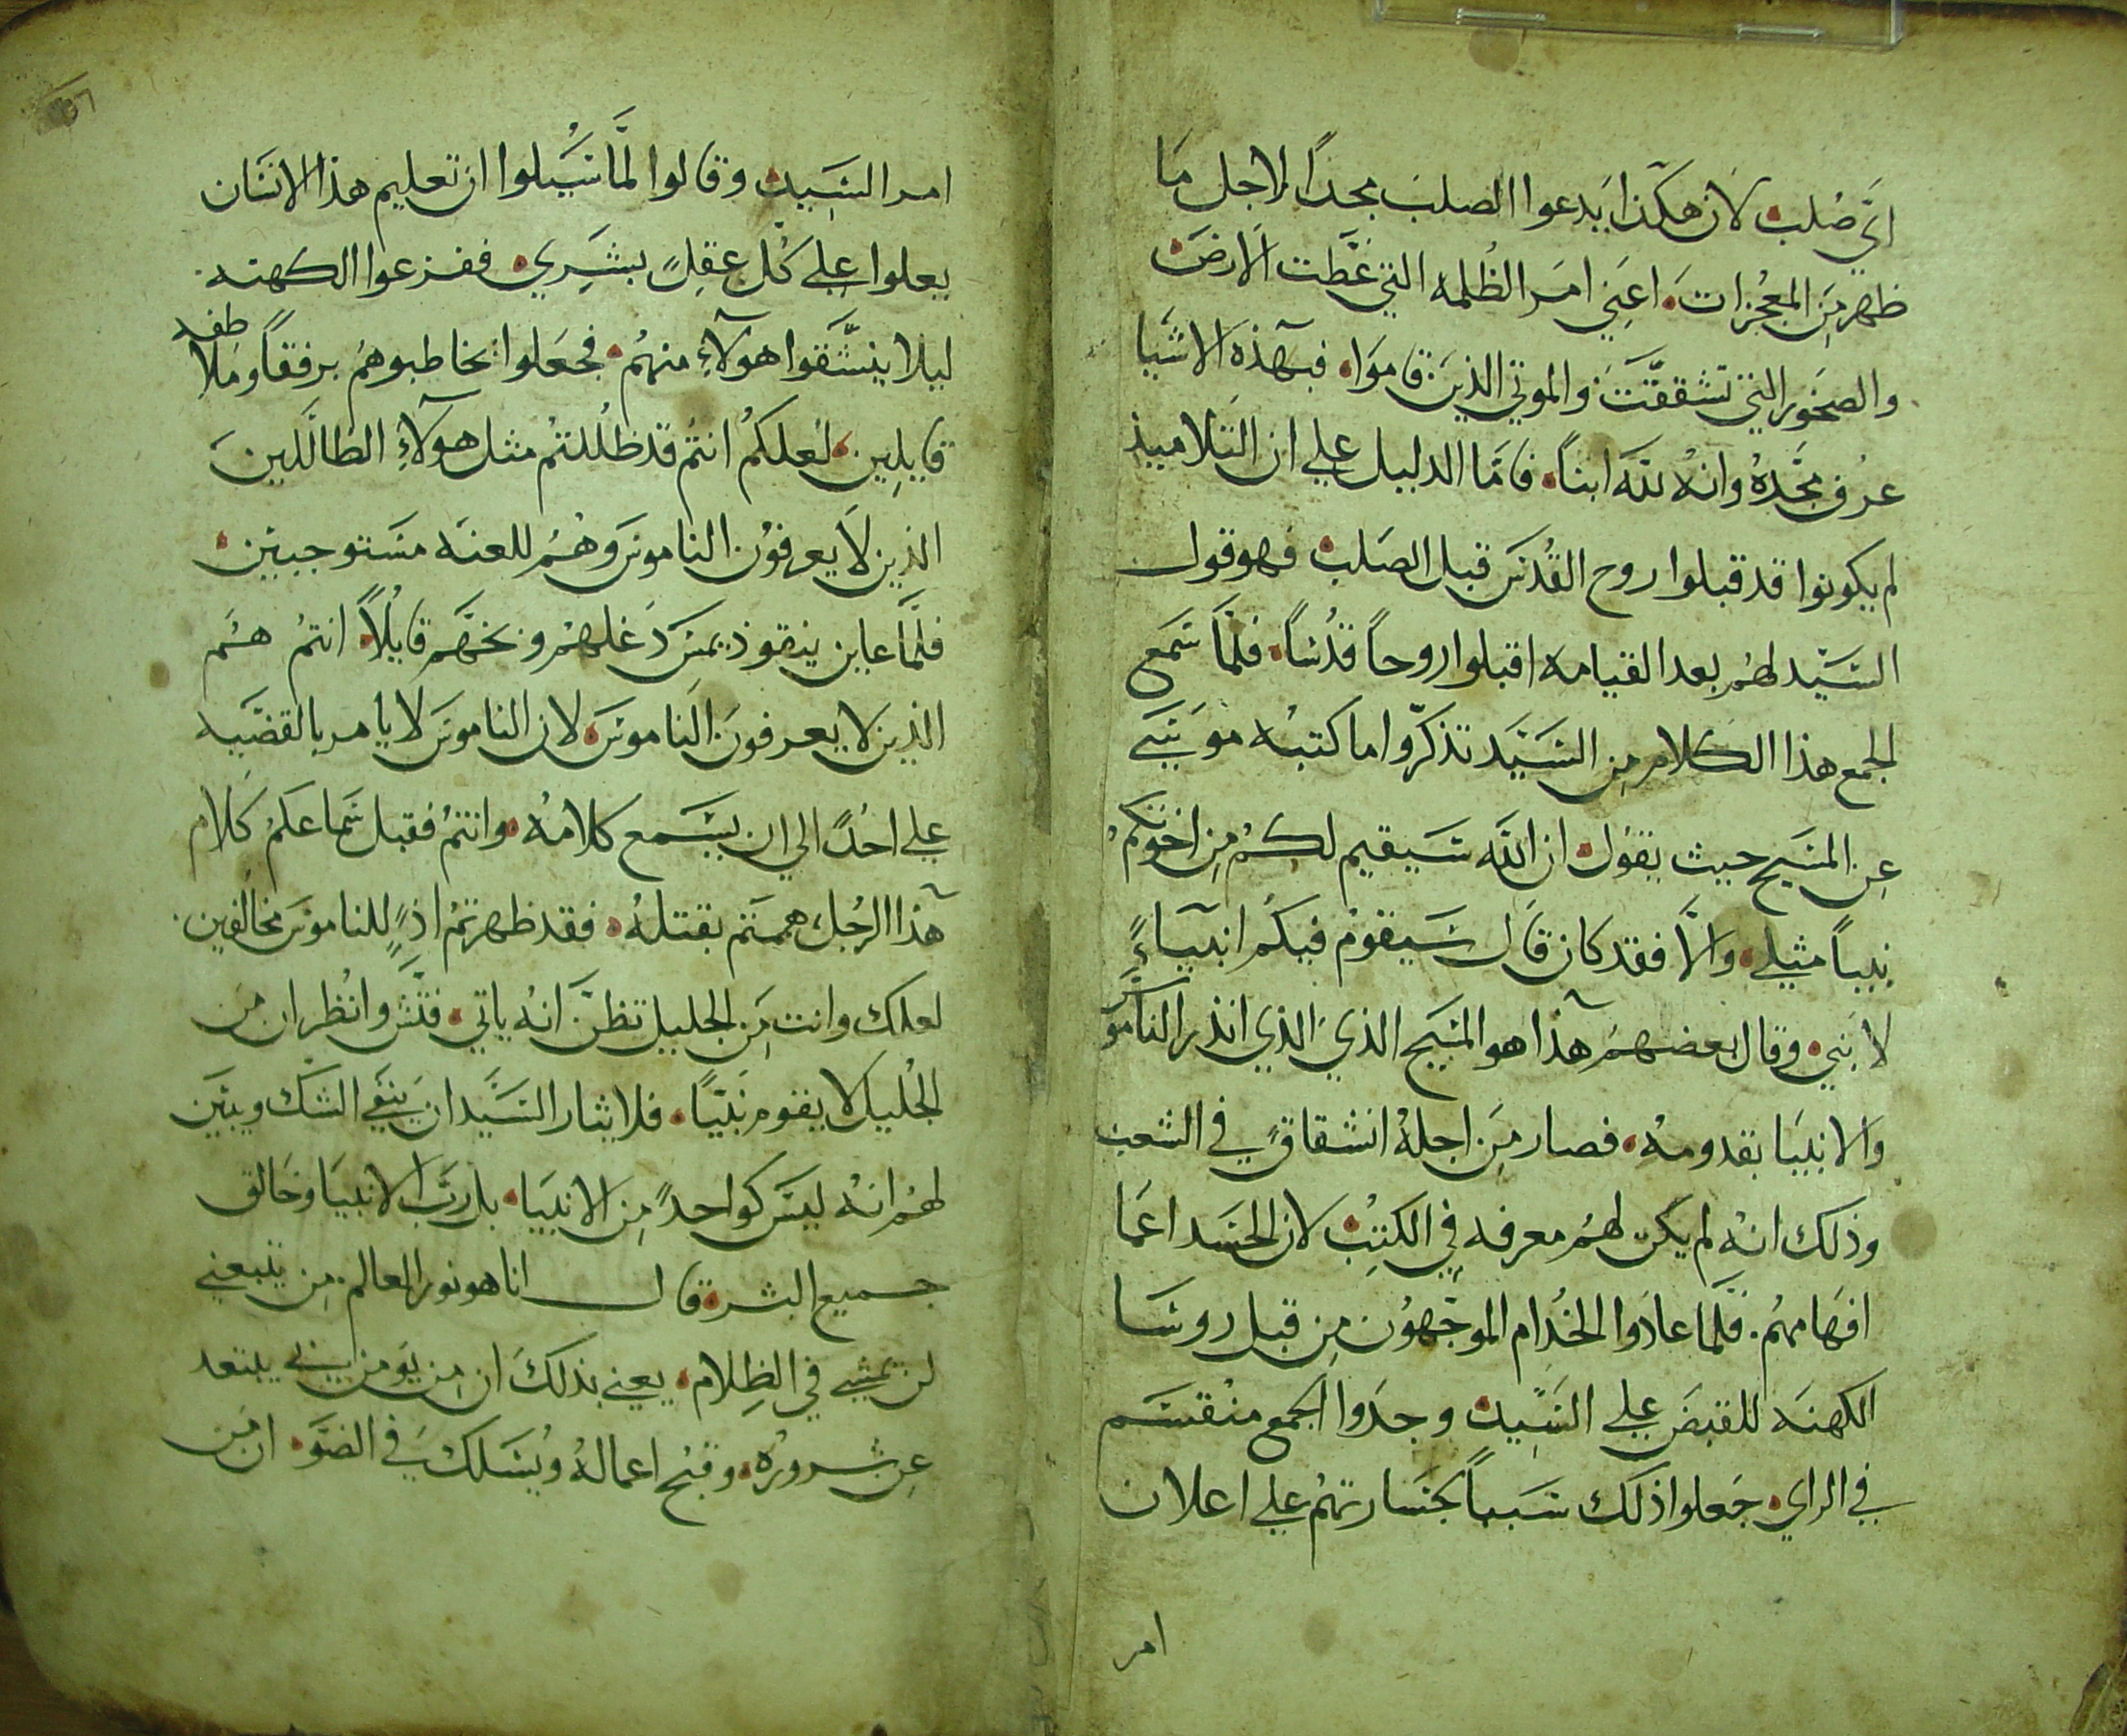 اي صُلب لان هكذا يدعوا الصلب مجداً لاجل ما
ظهر مِن المعجزات اعني امر الظُلمه التي غطّت الارض
والصخور التي تشققت والموتي الذين قاموا فبهذه الاشيا
عُرف مجّدهُ وانهُ لله ابناً فامّا الدليل علي ان التلاميذ
لم يكونوا قد قبلوا روح القُدس قبل الصلب فهو قول
السّيد لهُم بعد القيامه اقبلوا روحاً قدُساً فلمّا سمع
الجمع هذا الكلام مِن السيّد تذكرّوا ما كتبهُ موسي
عِن المسيح حيث يقول ان الله سيقيم لكم مِن اخوتكم
نبياً مثيلي والّا فقد كان قال سيقوم فيكم انبيآءً
لا نبي وقال بعضهم هذا هو المسيح الذي الذي انذر الناموس
والانبيا بقدومهُ فصار مِن اجلهُ انشقاقٍ في الشعب
وذلك انهُ لم يكن لهُم معرفه في الكتب لان الحسد اعما
افهامهُم فلّما عادوا الخُدام الموجّهون مِن قبل روسا
الكهنه للقبض علي السّيد وجدوا الجمع منقسم
في الراي جعلوا ذلك سبباً لجسارتهُم علي اعلان
امر
امر السّيد وقالوا لمّا سُيلوا ان تعليم هذا الانسان
يعلوا علي كُل عقلٍ بشري ففزعوا الكهنه
ليلا ينشّقوا هولآءِ منهُم فجعلوا يخاطبوهُم برفقاً وملاطفه
قايلين لعلكمُ انتمُ قد ظللتمُ مثل هولآءِ الظالّين
الذين لا يعرفون الناموس وهُم للعنه مستوجبين
فلّما عاين نيقوذيمس دغلهمُ وبخهّم قايلاً انتمُ هم
الذين لا يعرفون الناموس لان الناموس لا يامر بالقضيه
علي احدً الي ان يسمع كلامهُ وانتمُ فقبل سماعكم كلام
هذا الرجُل هممتم بقتلهُ فقد ظهرتمُ اذٍ للناموس مخالفين
لعلك وانت مِن الجليل تظنّ انهُ ياتي فتّش وانظر ان من
الجُليل لا يقوم نبيّاً فلا يثار السّيد ان ينفي الشك ويبين
لهُم انهُ ليس كواحدٍ مِن الانبيا بل ربّ الانبيا وخالق
جميع البشر قال انا هو نور العالم من يتبعني
لن يمشي في الظِلام يعني بذلك ان مِن يومن بي يبتعد
عِن شرورهُ وقبُح اعمالهُ ويُسلك في الضوّ ان من